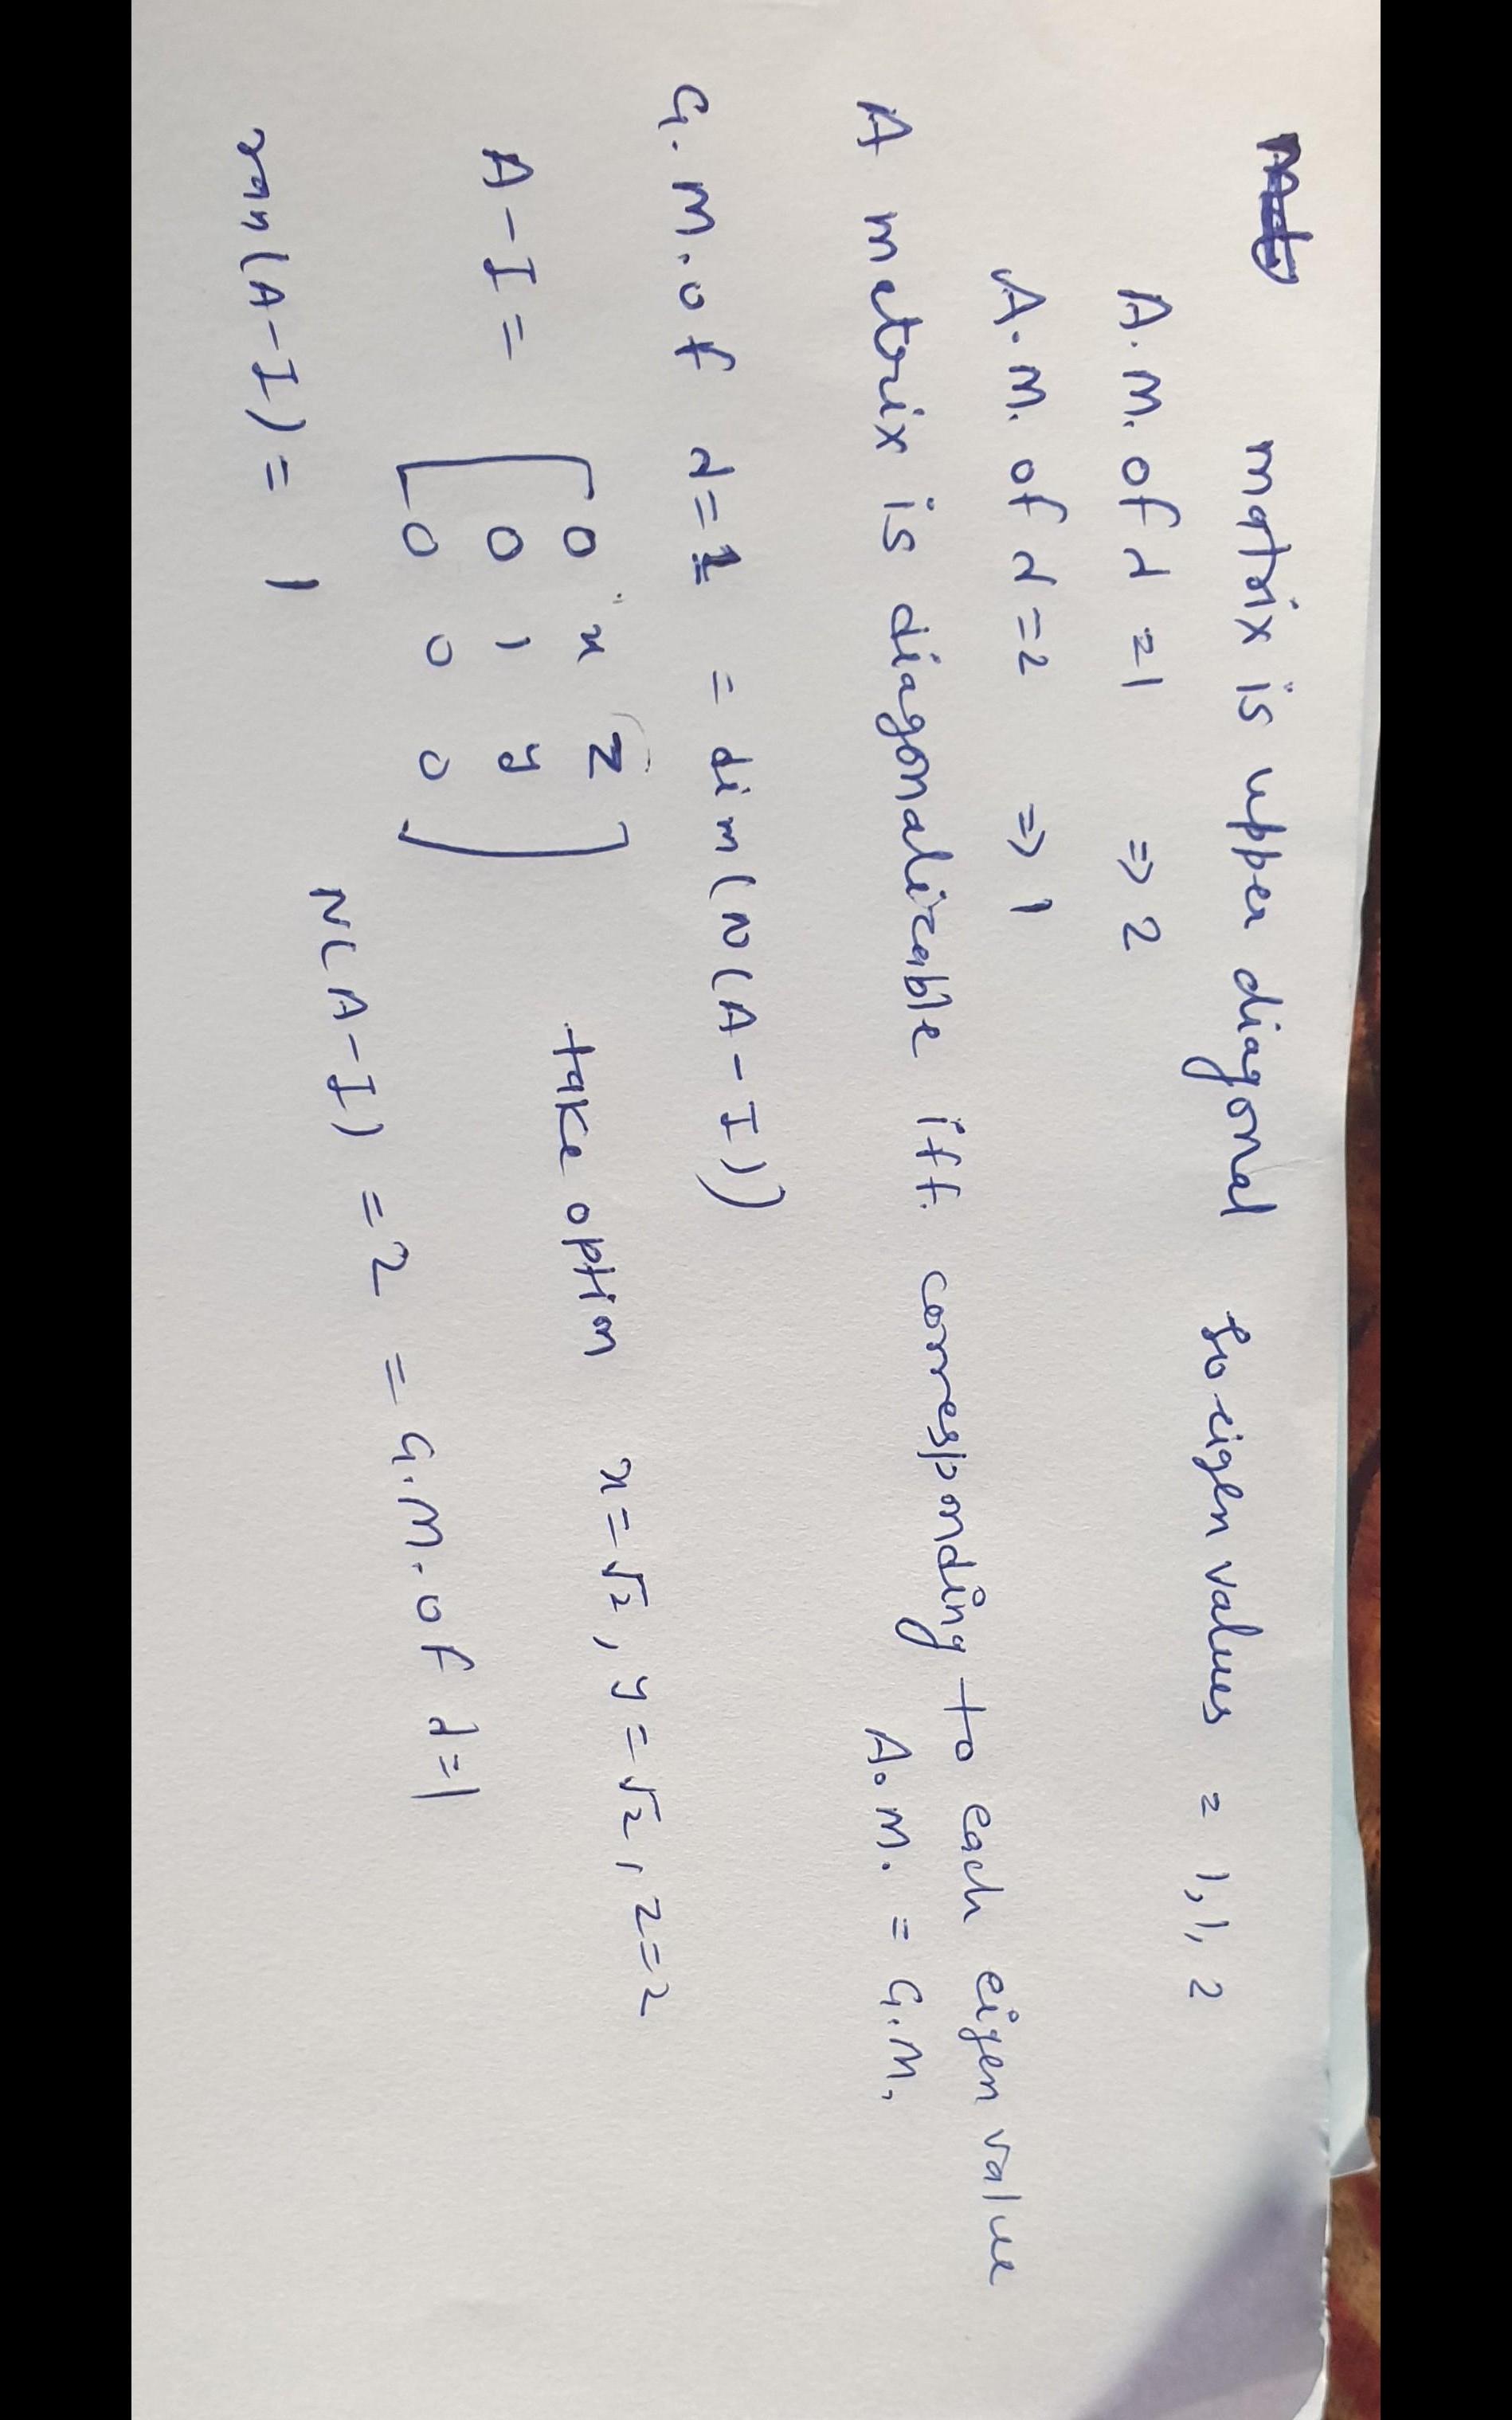 matrix is upper diagonal so eigen values = 1, 1, 2
A.M. of λ = 1 => 2
A.M. of λ = 2 => 1
A matrix is diagonalizable iff. corresponding to each eigen value
A.M. = G.M.
G.M. of λ = 1 = dim(N(A - I))
A - I = [0 x z
0 1 y
0 0 0] take option x = √2, y = √2, z = 2
ran(A - I) = 1
N(A - I) = 2 = G.M. of λ = 1